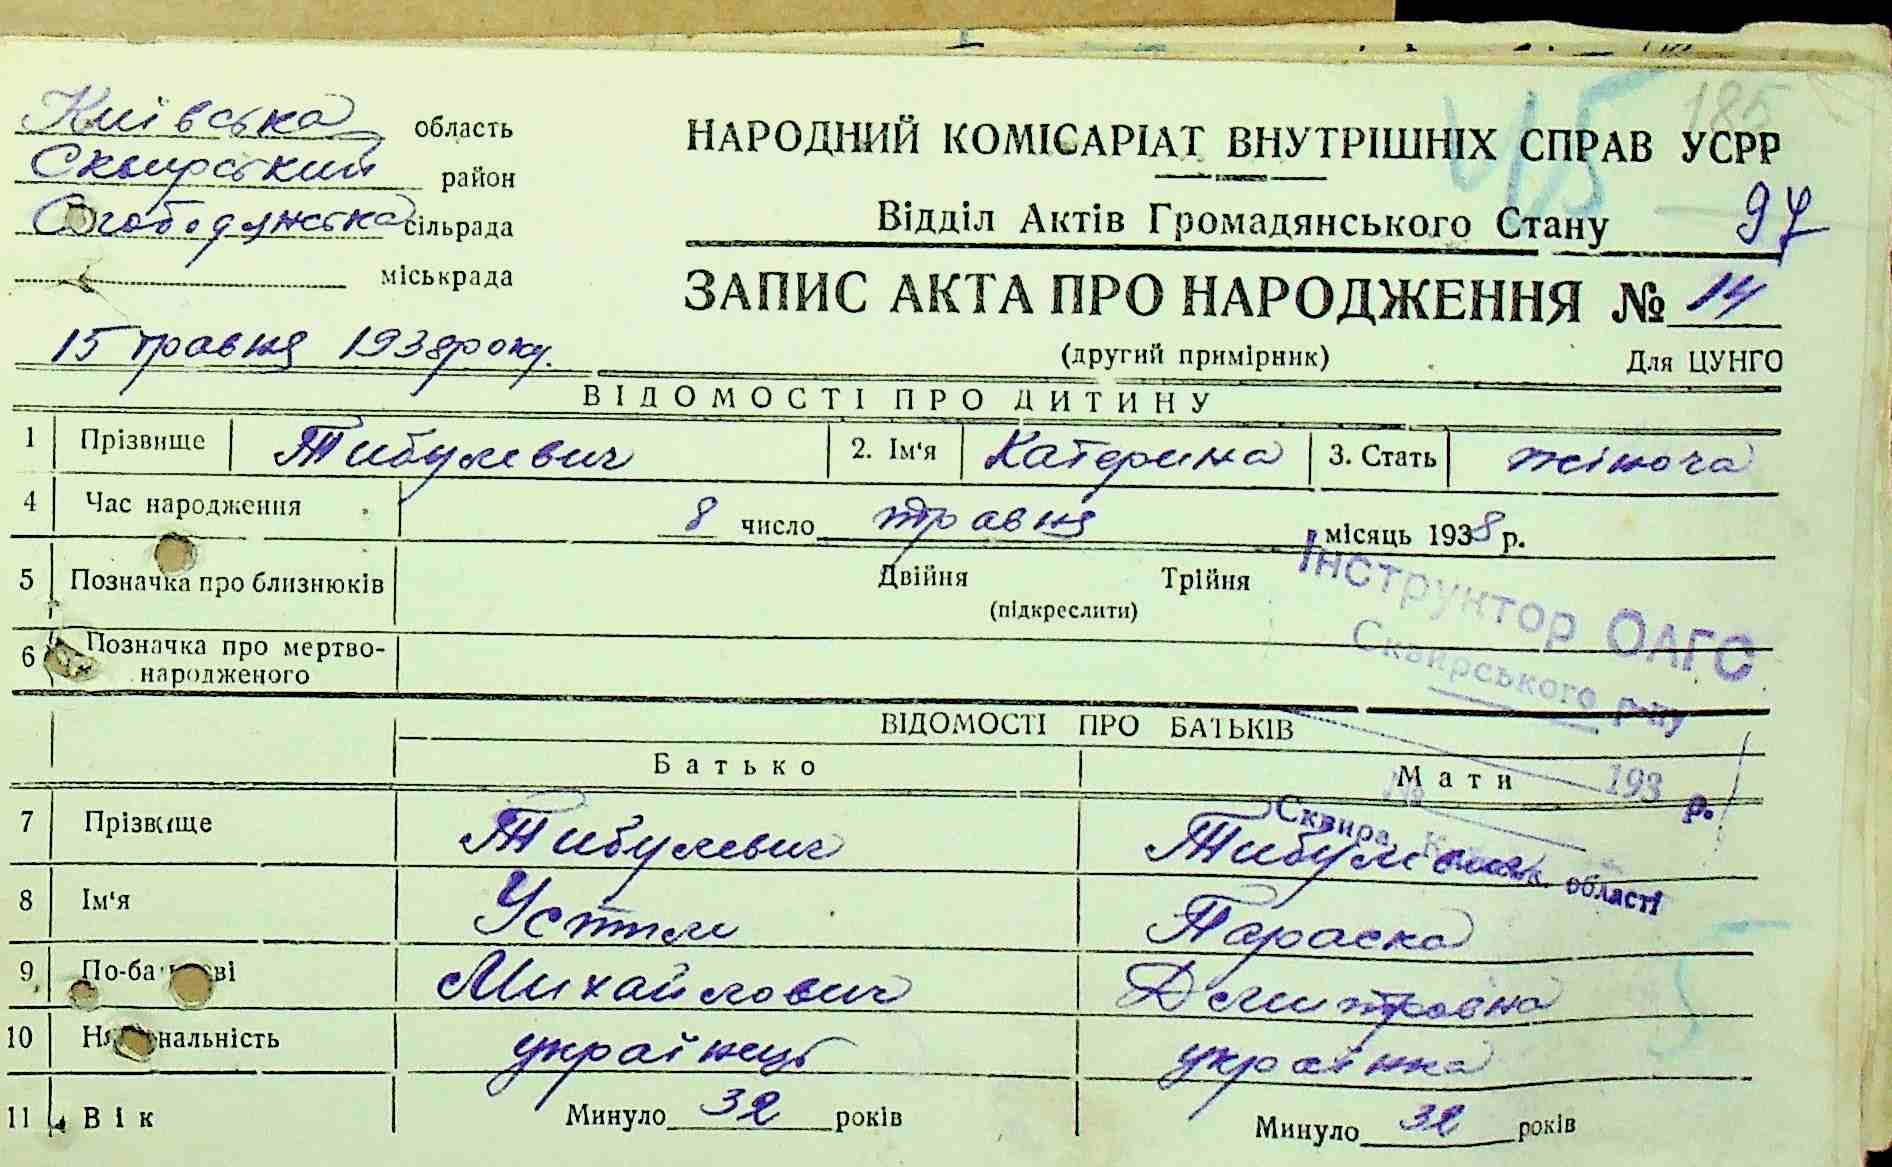 Київська область
Сквирський район
сільрада
міськрада
15 травня 1938 року.
НАРОДНИЙ КОМІСАРІАТ ВНУТРІШНІХ СПРАВ УСРР
185
Відділ Актів Громадянського Стану
97
ЗАПИС АКТА ПРО НАРОДЖЕННЯ № 14
(другий примірник) Для ЦУНГО
ВІДОМОСТІ ПРО ДИТИНУ
1 Прізвище Тибулевич 2. Ім'я Катерина 3. Стать жіноча
4 Час народження 8 число травня місяць 1938 р.
5 Позначка про близнюків Двійня Трійня
(підкреслити)
6 Позначка про мертво-
народженого
Інструктор ОАГС
Сквирського р-ну
193 р.
№
Сквира, області
ВІДОМОСТІ ПРО БАТЬКІВ
Батько Мати
7 Прізвище Тибулевич Тибулевич
8 Ім'я Устим Параска
9 По-ба ві Михайлович Дмитровна
10 Національність українець українка
11 Вік Минуло 32 років Минуло 32 років